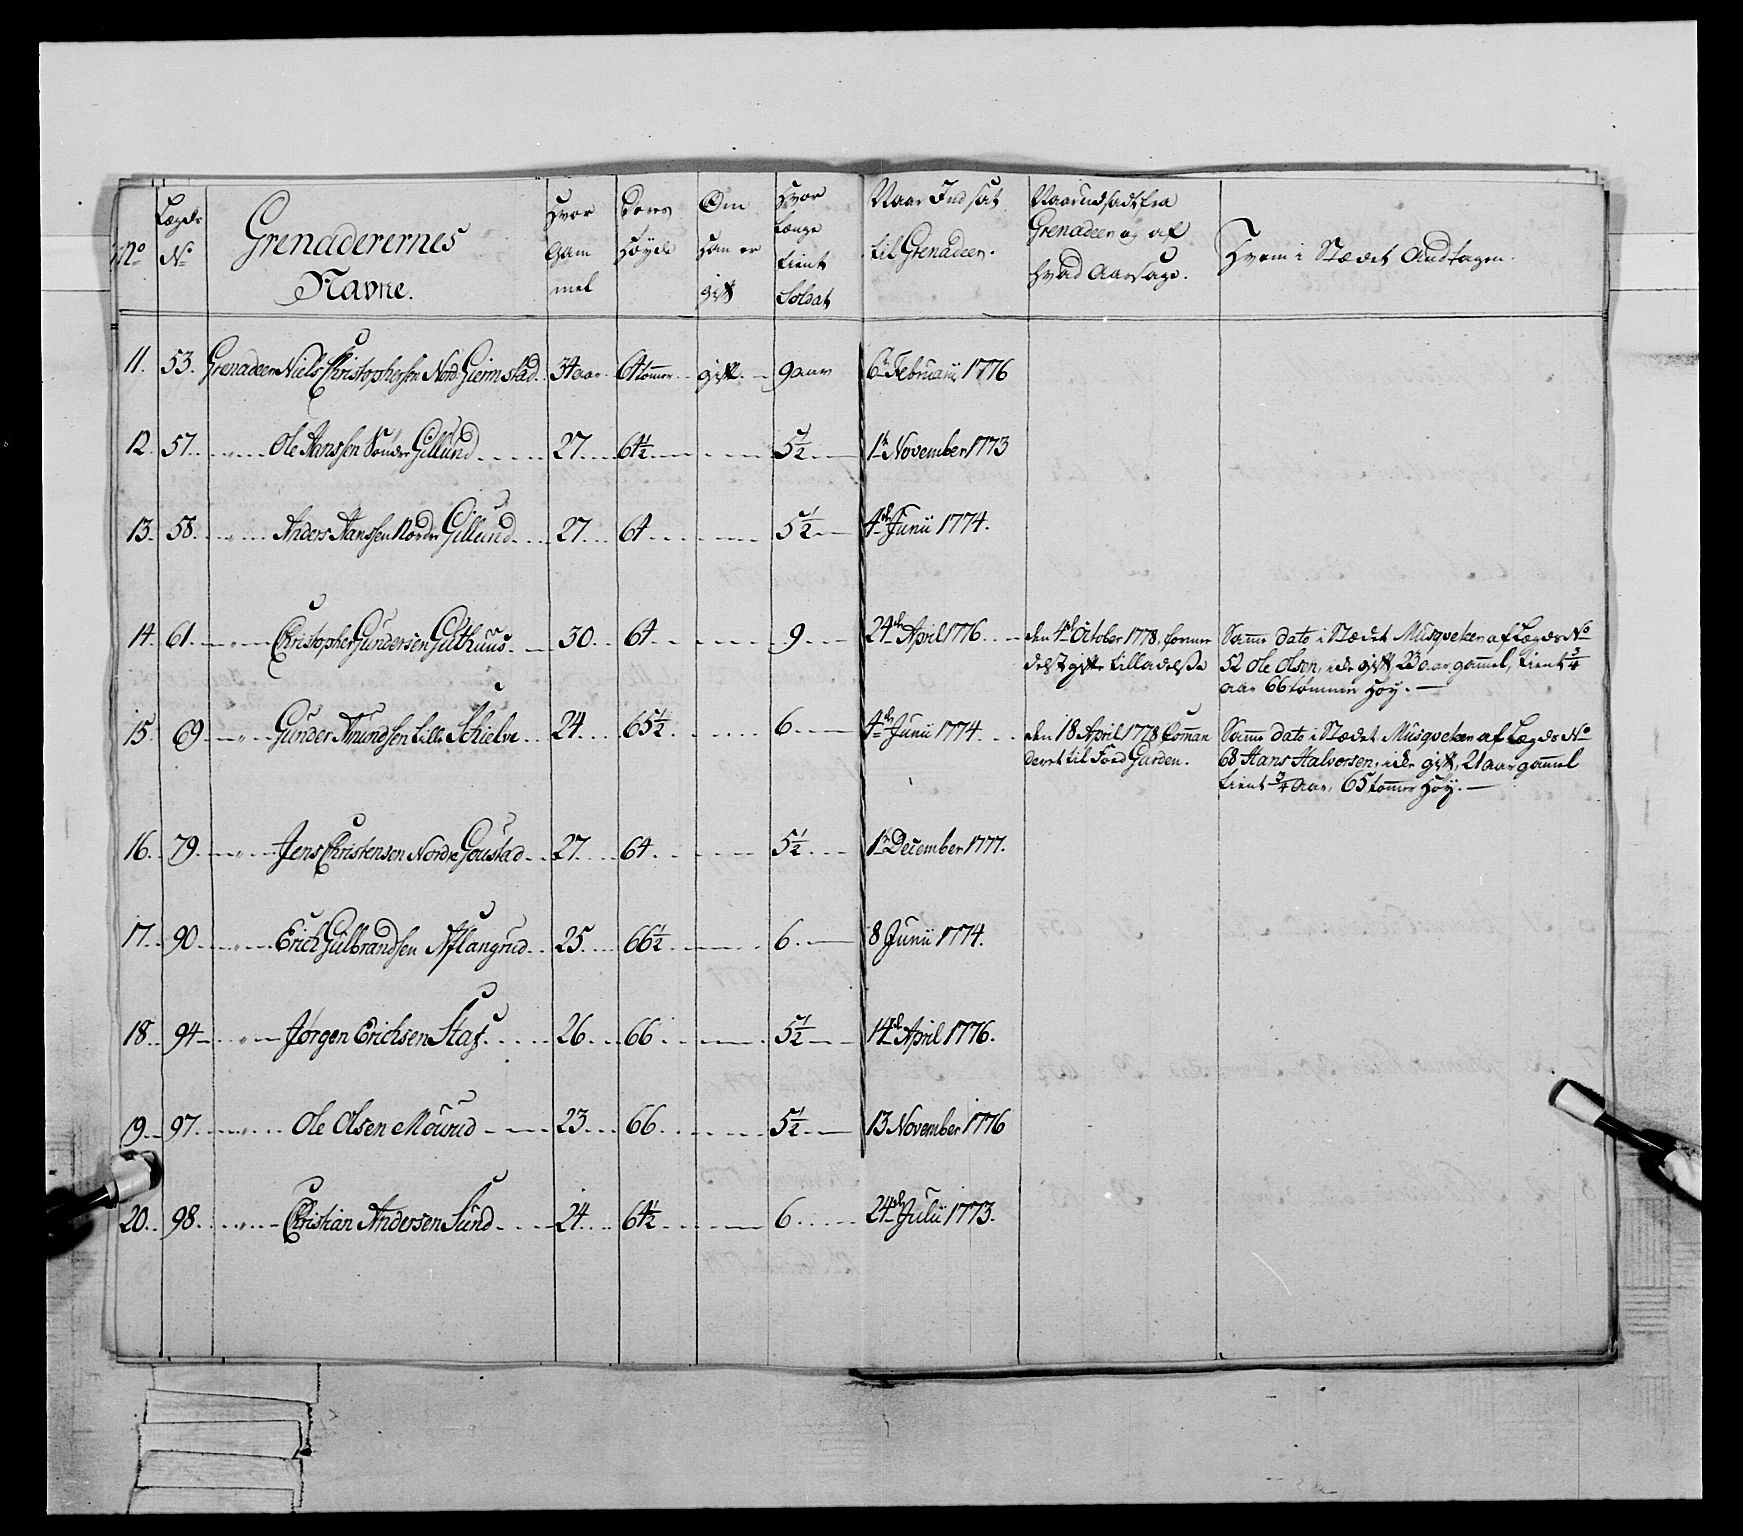 No
Lægds No
Grenaderernes Navne.
Hvor Gam mel
Deres Høyde
Om Han er gift
Hvor længe tient Soldat
Naar Indsat til Grenadeer.
Naar udsadt fra Grenadeer og af hvad Aarsage.
Hvem i Stædet Andtagen.
11. 53. Grenadeer Niels Christophersen Nord Gierm stad. 34 aar. 64 tommer gift. 9 aar 6te Februarii 1776
12. 57. " Ole Hanssen Sønder Gillund 27 64½ 5½ 1te November 1773
13. 58. " Anders Hanssen Nordre Gillund 27 64 5½ 4de Junii 1774.
14. 61. " Christopher Gundersen Guthuus. 30 64 9 24de April 1776. den 4de October 1778, formedelst gifte tilladelse
Samme dato i Stædet Musqveteer af Lægds No
52 Ole Olsen, icke gift 23 aar gammel, tient ¾
aar 66 tommer Høy.
15. 69. " Gunder Amundsen Lille Schielve 24 65½ 6 4de Junii 1774. den 18 April 1778, Comman
deret til Foed Garden.
Samme dato i Stædet Musqveteer af Lægds No
68 Hans Halvorsen, icke gift, 21 aar gammel
tient ¾ Aar, 65 tommer Høy.
16. 79. " Jens Christensen Nordre Goustad 27 64 5½ 1te December 1777.
17. 90. " Erich Gulbrandsen Aslangrud 25 66½ 6 8 Junii 1774.
18. 94 " Jørgen Erichsen 26 66 5½ 14de April 1776.
19. 97. " Ole Olsen Mourud 23 66 5½ 13 November 1776
20. 98. " Christian Andersen Sund 24 64½ 6 24de Julii 1773.